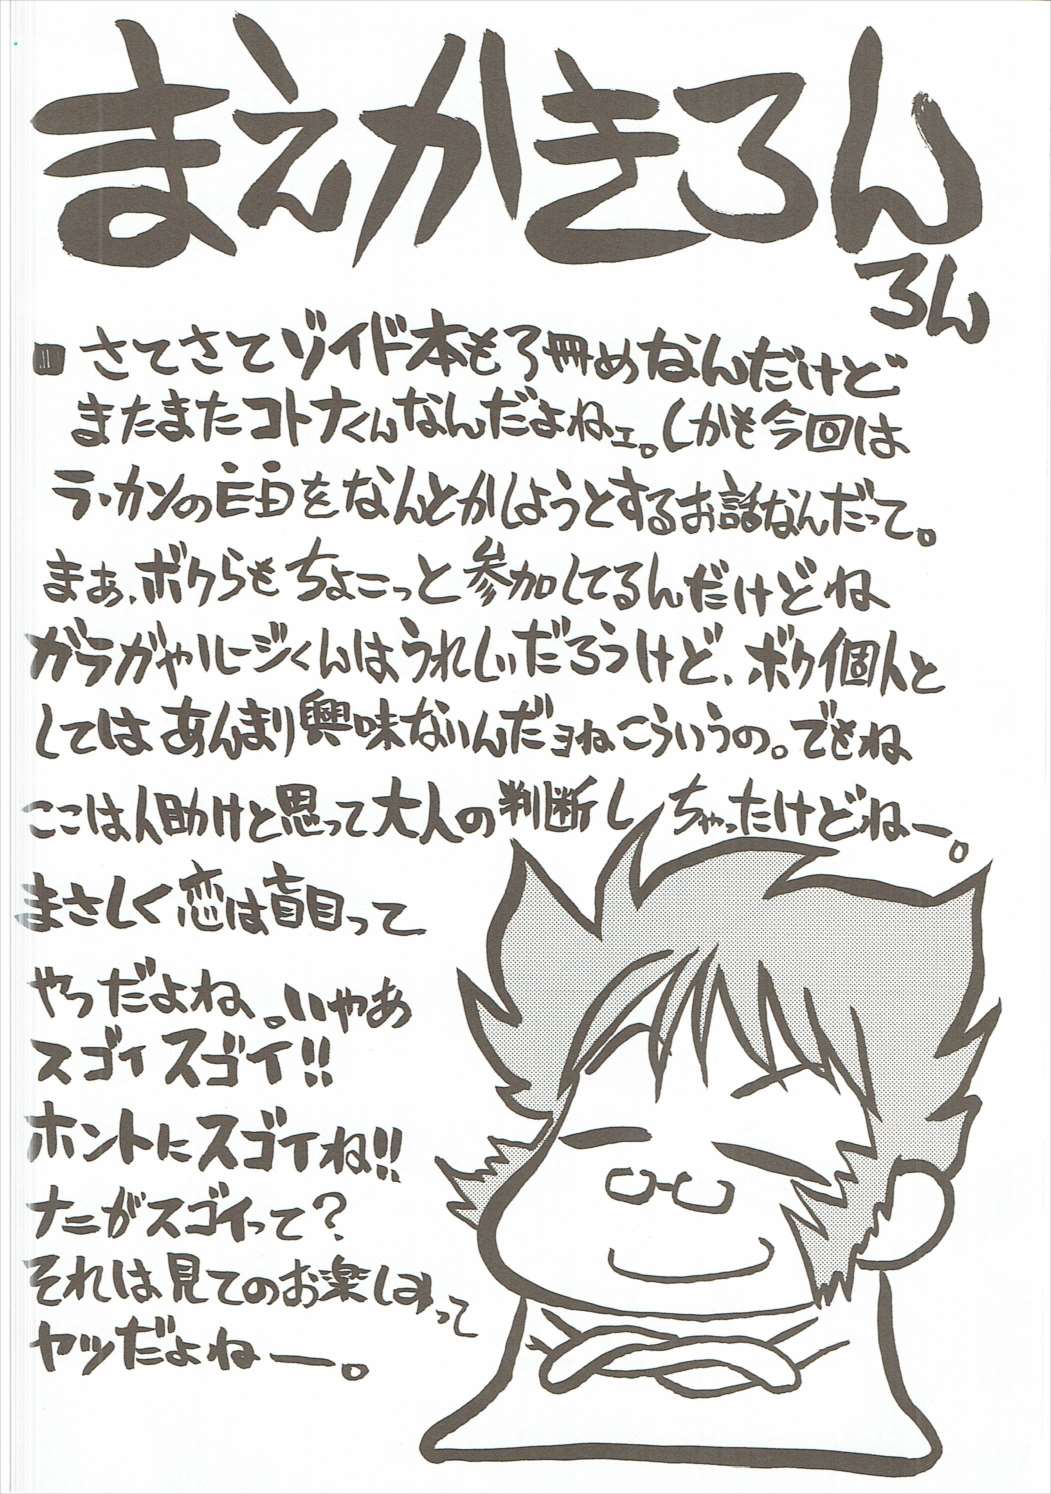 まえかきろん
ろん
さてさてゾイド本も3冊めなんだけど
またまたコトナくんなんだよねェ。しかも今回は
ラ・カンのをなんとかしようとするお話なんだって。
まぁ、ボクらもちょこっと参加してるんだけどね
ガラガやルージくんはうれしいだろうけど、ボク個人と
してはあんまり興味ないんだョねこういうの。でもね
ここは人助けと思って大人の判断しちゃったけどねー。
まさしく恋は盲目って
やつだよね、。いやあ
スゴイスゴイ!!
ホントにスゴイね!!
ナニがスゴイって?
それは見てのお楽しみって
ヤツだよねー。